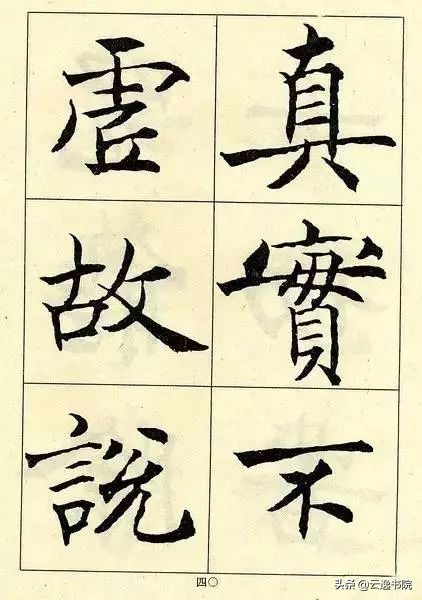 真實不
虛故說
四〇
头条 @云逸书院